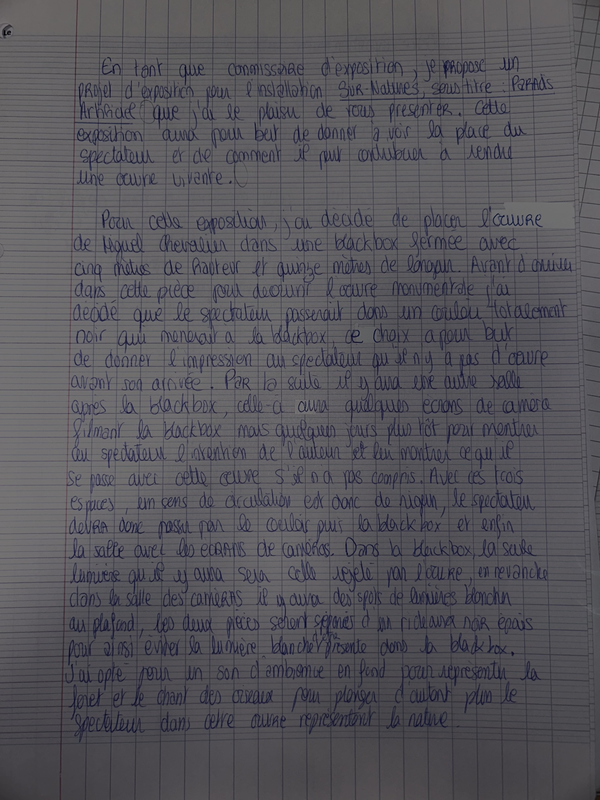 En tant que commissaire d'exposition, je propose un
projet d'exposition pour l'installation Sur-Natures, sous titre : Paradis
Artificiel que j'ai le plaisir de vous presenter. Cette
exposition aura pour but de donner a voir la place du
spectateur et de comment il peut contribuer à rendre
une œuvre vivante.
Pour cette exposition, j'ai décidé de placer l'œuvre
de Miguel Chevalier dans une blackbox fermée avec
cinq mètres de hauteur et quinze mètres de longueur. Avant d'arriver
dans cette pièce pour decouvrir l'œuvre monumentale j'ai
décidé que le spectateur passerait dans un couloir totalement
noir qui menerait a la blackbox, ce choix a pour but
de donner l'impression au spectateur qu'il n'y a pas d'œuvre
avant son arrivée. Par la suite il y aura une autre salle
après la blackbox, celle-ci aura quelques ecrans de camera
filmant la blackbox mais quelques jours plus tôt pour montrer
au spectateur l'intention de l'auteur et leur montrer ce qu'il
se passe avec cette œuvre s'il n'a pas compris. Avec ces trois
espaces, un sens de circulation est donc de rigueur, le spectateur
devra donc passer par le couloir puis la blackbox et enfin
la salle avec les ecrans de caméras. Dans la blackbox la seule
lumière qu'il y aura sera celle rejeté par l'œuvre, en revanche
dans la salle des cameras il y aura des spots de lumières blanches
au plafond, les deux pièces seront séparées d'un rideaux noir épais
pour ainsi éviter la lumière blanche présente dans la blackbox.
J'ai opté pour un son d'ambiance en fond pour representer la
foret et le chant des oiseaux pour plonger d'autant plus le
spectateur dans cette œuvre representant la nature.